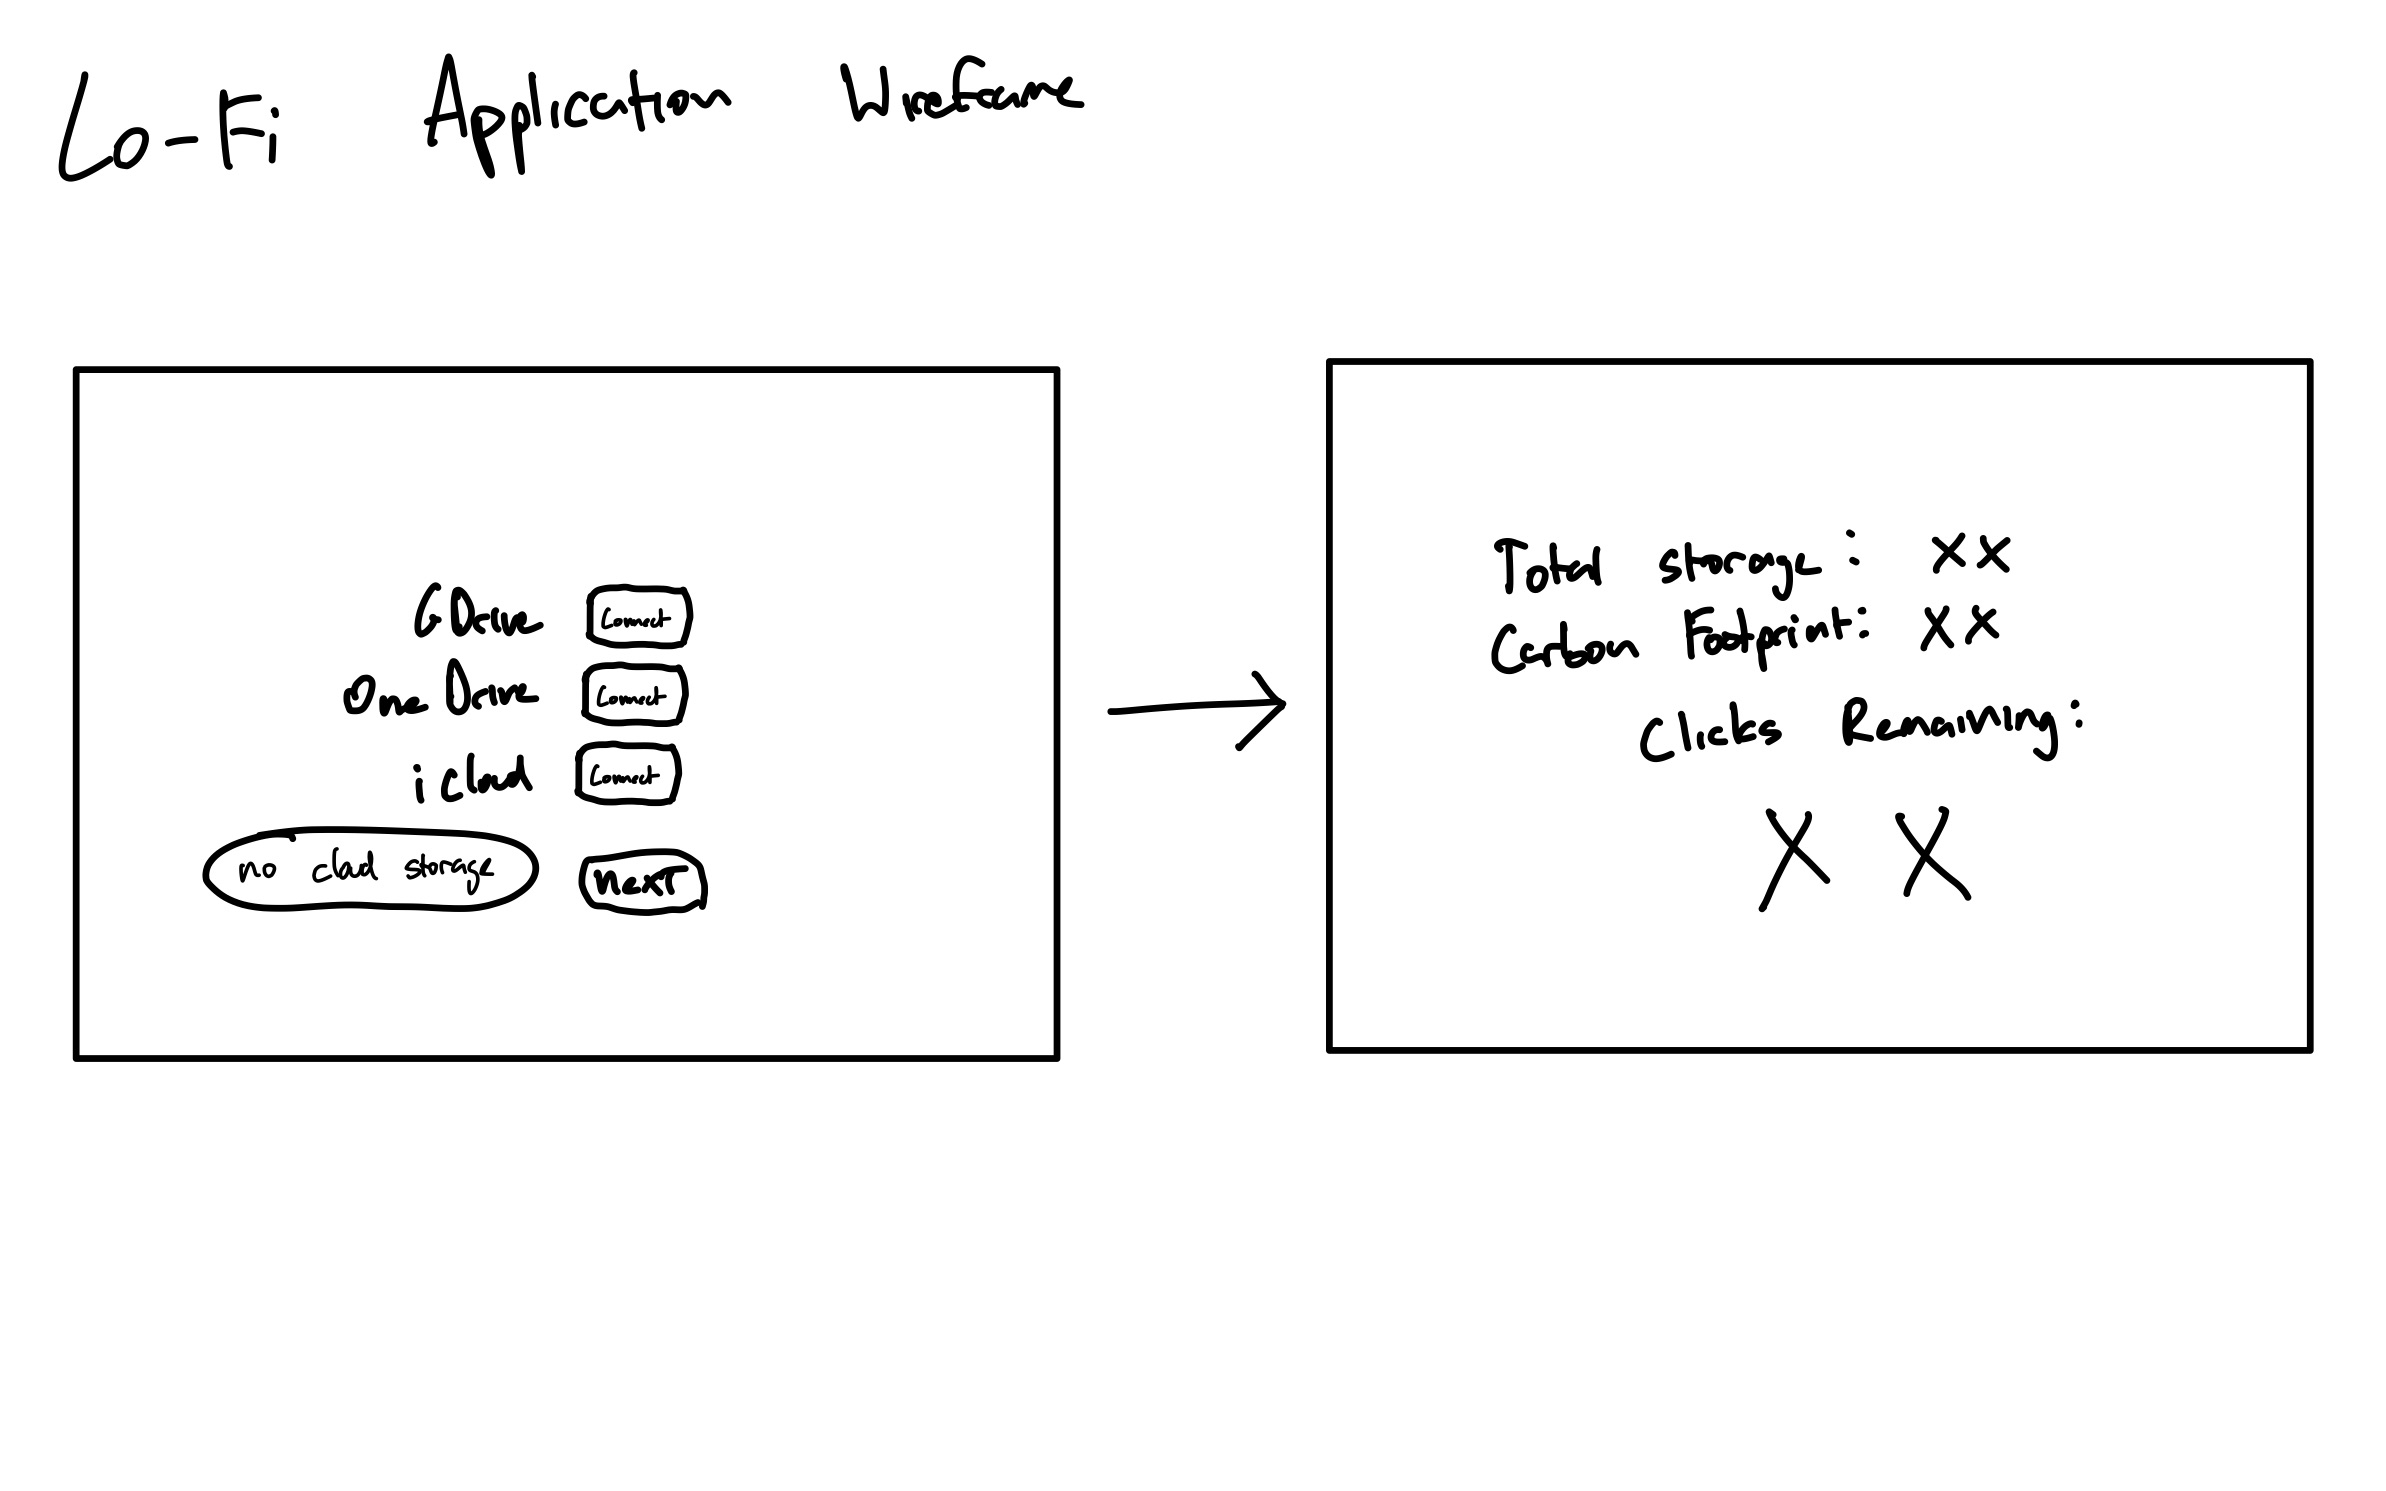 Lo-Fi Application Wireframe
GDrive Connect
OneDrive Connect
icloud Connect
no cloud storage next
Total storage: XX
Carbon Footprint: XX
Clicks Remaining:
X X